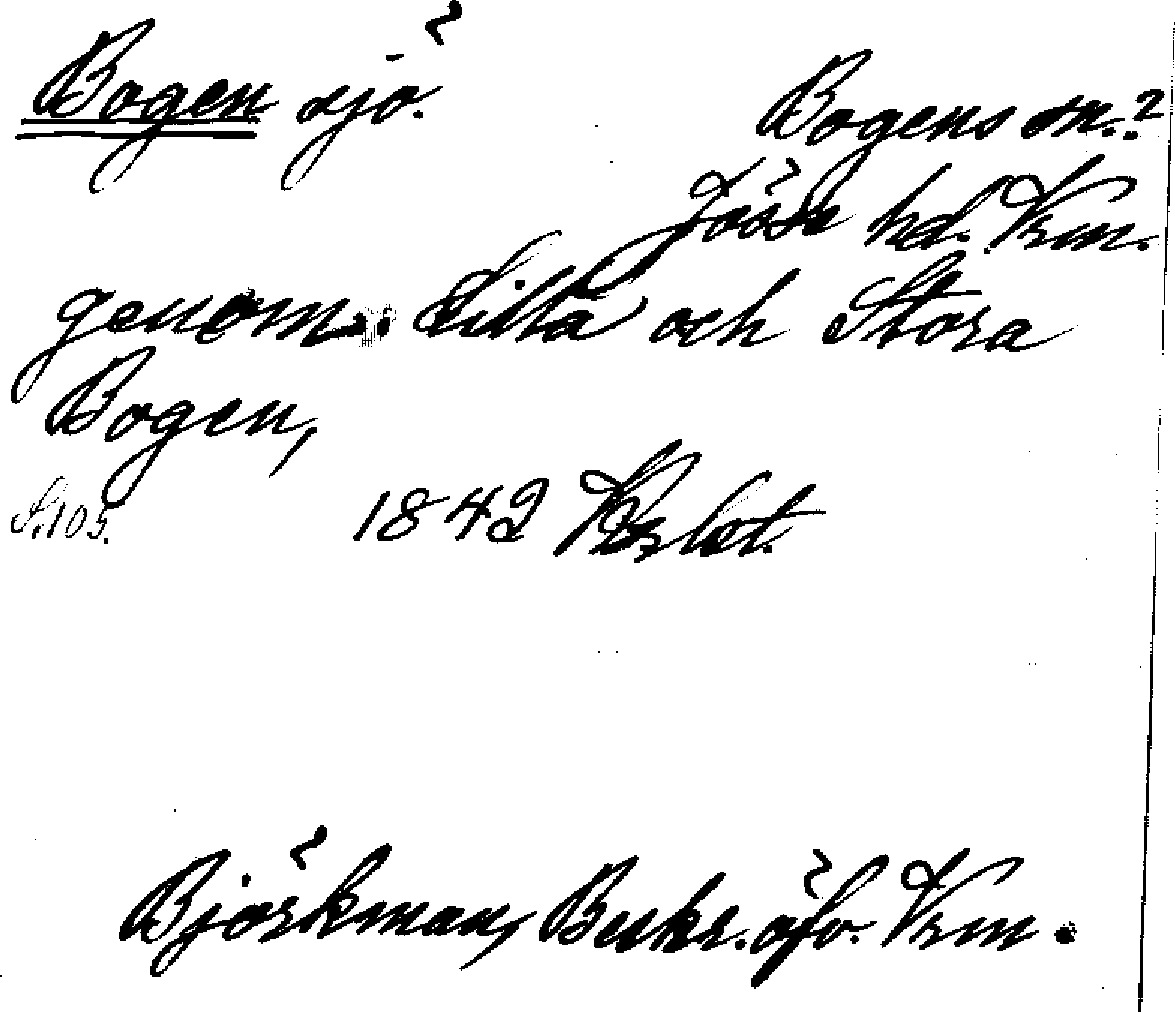 Bogen sjö.
Bogens sn.?
Jösse hd. Vrm.
genom. Lilla och Stora
Bogen,
S. 105. 1842
Björkman, Beskr. öfv. Vrm.